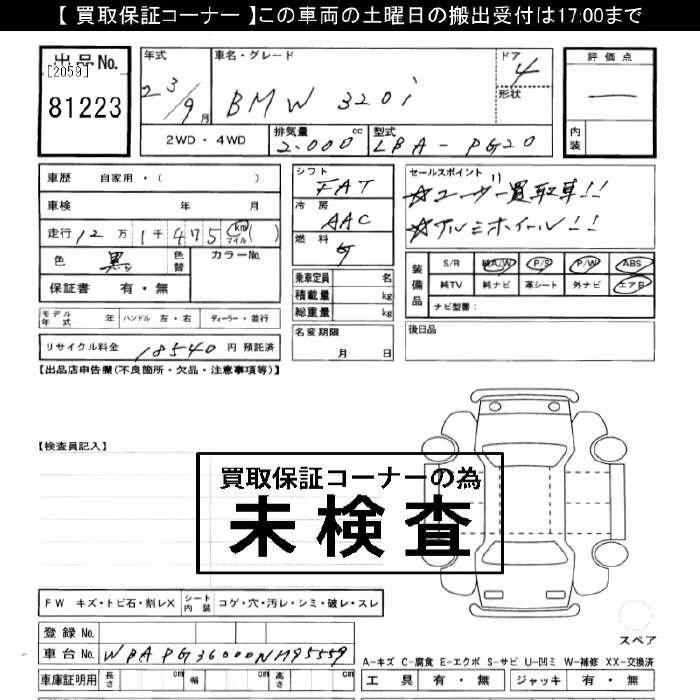 【 買取保証コーナー 】この車両の土曜日の搬出受付は17:00まで
出品No.
[2059]
81223
年式
23/9月
車名・グレード
BMW 320i
ドア
4
形状
評価点
—
内装
2WD・4WD
排気量
2.000cc
型式
LBA-PG20
車歴 自家用・( )
車検 年 月
走行 12万1千475 km マイル ( )
色 黒
色替
カラーNo.
保証書 有・無
シフト
FAT
冷房
AAC
燃料
G
セールスポイント
☆ユーザー買取車!!
☆アルミホイール!!
装備品
S/R 純A/W P/S P/W ABS
純TV 純ナビ 革シート 外ナビ エアB
ナビ型番:
乗車定員 名
積載量 kg
総重量 kg
名変期限
月 日
後日品
モデル年式 年 ハンドル 左・右 ディーラー・並行
リサイクル料金 18540 円 預託済
【出品店申告欄(不良箇所・欠品・注意事項等)】
【検査員記入】
買取保証コーナーの為
未検査
FW キズ・トビ石・割レX シート内装 コゲ・穴・汚レ・シミ・破レ・スレ
スペア
登録No.
車台No. WBAPG36000NM95559
A-キズ C-腐食 E-エクボ S-サビ U-凹ミ W-補修 XX-交換済
車庫証明用 長さ cm 幅 cm 高さ cm
工具 有・無 ジャッキ 有・無